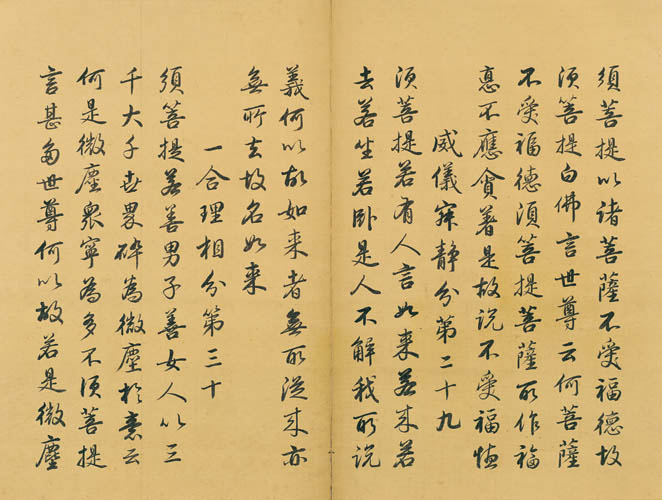 須菩提以諸菩薩不受福德故
須菩提白佛言世尊云何菩薩
不受福德須菩提菩薩所作福
德不應貪著是故說不受福德
威儀寂靜分第二十九
須菩提若有人言如來若來若
去若坐若卧是人不解我所說
義何以故如來者無所從來亦
無所去故名如來
一合理相分第三十
須菩提若善男子善女人以三
千大千世界碎為微塵於意云
何是微塵衆寧為多不須菩提
言甚多世尊何以故若是微塵